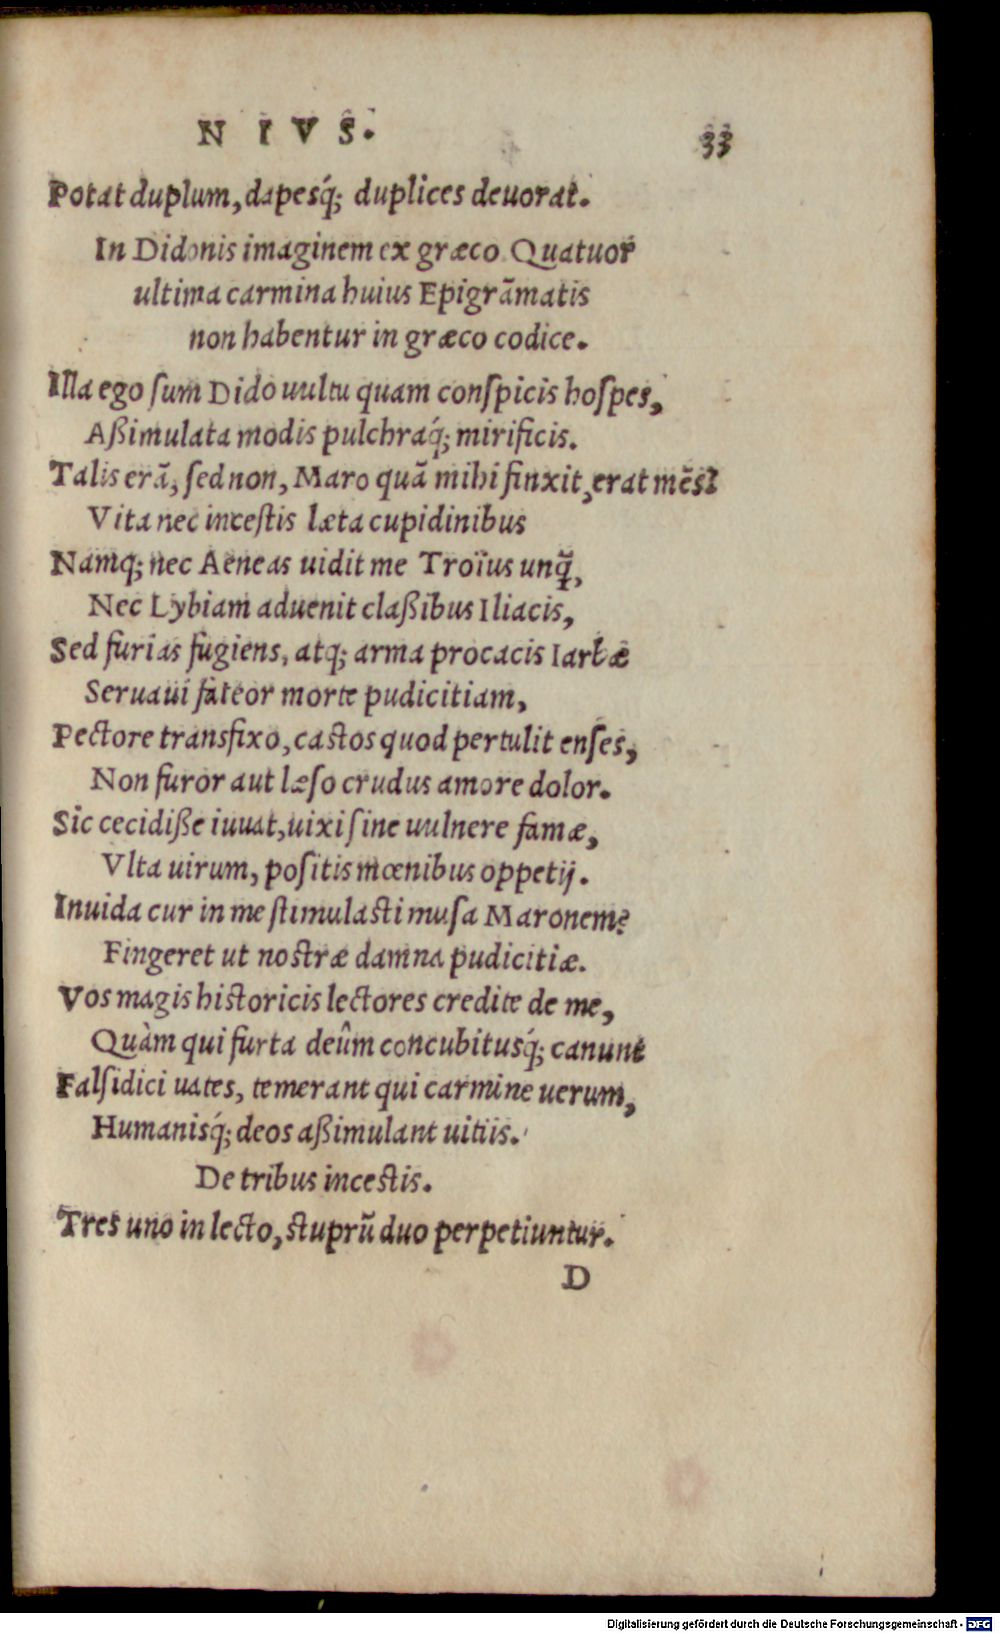 N I V S.
33
Potat duplum, dapesq́; duplices deuorat.
In Didonis imaginem ex græco Quatuor
ultima carmina huius Epigrãmatis
non habentur in græco codice.
Illa ego sum Dido uultu quam conspicis hospes,
Aßimulata modis pulchraq́; mirificis.
Talis erã, sed non, Maro quã mihi finxit, erat mẽs
Vita nec incestis læta cupidinibus
Namq; nec Aeneas uidit me Troïus unq̃,
Nec Lybiam aduenit claßibus Iliacis,
Sed furias fugiens, atq; arma procacis Iarbæ
Seruaui fateor morte pudicitiam,
Pectore transfixo, castos quod pertulit enses,
Non furor aut læso crudus amore dolor.
Sic cecidiße iuuat, uixi sine uulnere famæ,
Vlta uirum, positis mœnibus oppetij.
Inuida cur in me stimulasti musa Maronem?
Fingeret ut nostræ damna pudicitiæ.
Vos magis historicis lectores credite de me,
Quàm qui furta deûm concubitusq́; canunt
Falsidici uates, temerant qui carmine uerum,
Humanisq́; deos aßimulant uitiis.
De tribus incestis.
Tres uno in lecto, stuprũ duo perpetiuntur.
D
Digitalisierung gefördert durch die Deutsche Forschungsgemeinschaft - DFG